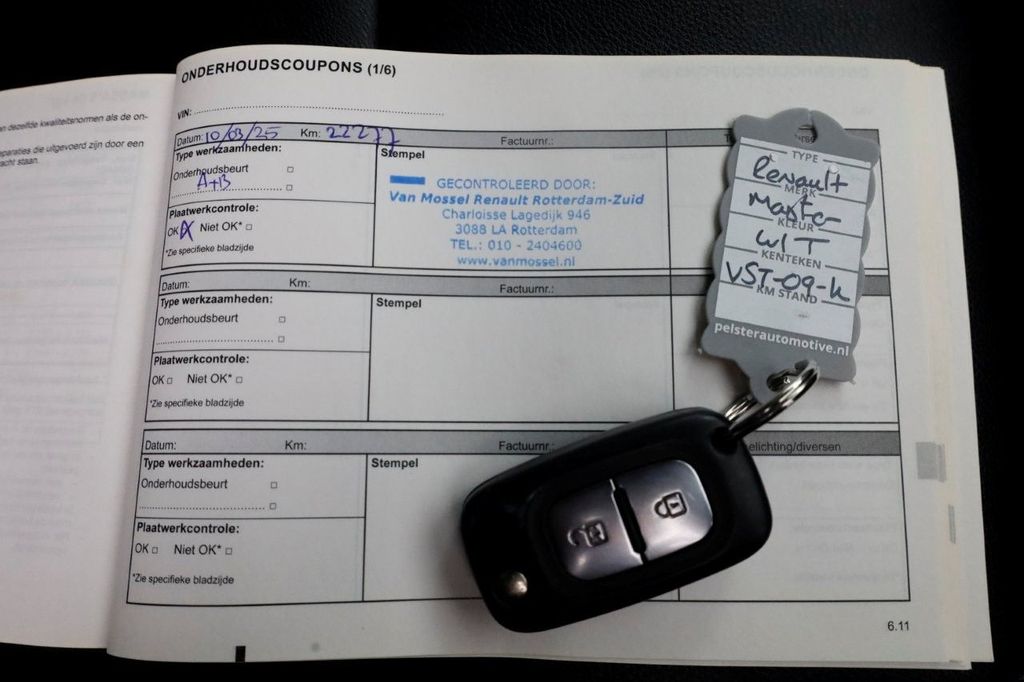 an dezelfde kwaliteitsnormen als de on-
eparaties die uitgevoerd zijn door een
acht staan.
ONDERHOUDSCOUPONS (1/6)
VIN:
Datum: 10/03/25 Km: 22277 Factuurnr.:
Type werkzaamheden:
Stempel
Onderhoudsbeurt
A+B
Plaatwerkcontrole:
OK X Niet OK*
*Zie specifieke bladzijde
GECONTROLEERD DOOR:
Van Mossel Renault Rotterdam-Zuid
Charloisse Lagedijk 946
3088 LA Rotterdam
TEL.: 010 - 2404600
www.vanmossel.nl
Datum: Km: Factuurnr.:
Type werkzaamheden:
Stempel
Onderhoudsbeurt
Plaatwerkcontrole:
OK Niet OK*
*Zie specifieke bladzijde
Datum: Km: Factuurnr.: elichting/diversen
Type werkzaamheden:
Stempel
Onderhoudsbeurt
Plaatwerkcontrole:
OK Niet OK*
*Zie specifieke bladzijde
6.11
TYPE
Renault
MERK
Master
KLEUR
WIT
KENTEKEN
VST-09-K
KM STAND
pelsterautomotive.nl